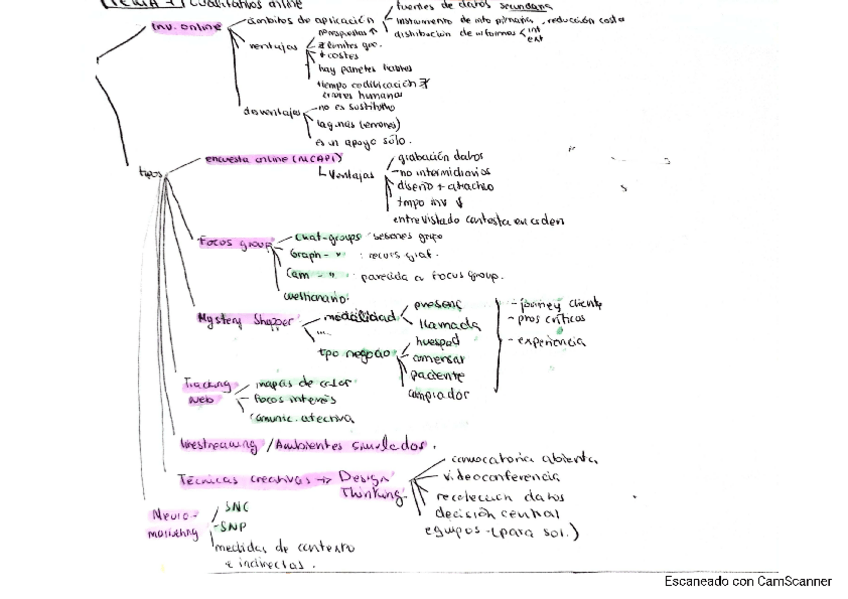 TEMA 7 Cualitativos online
Inv. online
ámbitos de aplicación
fuentes de datos secundaria
instrumento de info primaria, reducción costes
distribución de informes < int
ext
ventajas
nº respuestas ↑
∄ límites geo.
+ costes
hay paneles
tiempo codificación ∄
errores humanos
desventajas
no es sustitutivo
lagunas (errores)
es un apoyo sólo.
tipos
encuesta online (MCAPI)
Ventajas
grabación datos
no intermediarios
diseño + atractivo
tmpo inv ↓
entrevistado contesta en orden
Focus group
Chat-groups sesiones grupo
Graph- " : recurs graf.
Cam - " parecida a Focus group.
cuestionario.
Mystery Shopper
modalidad
presenc
llamada
...
tipo negocio
huesped
comensal
paciente
comprador
- journey cliente
- ptos críticos
- experiencia
Tracking web
mapas de calor
focos interés
comunic. afectiva
livestreaming / Ambientes simulados.
Técnicas creativas → Design Thinking
convocatoria abierta
videoconferencia
recolección datos
decisión central
equipos - (para sol.)
Neuro-
marketing
SNC
-SNP
medidas de contexto
e indirectas.
Escaneado con CamScanner